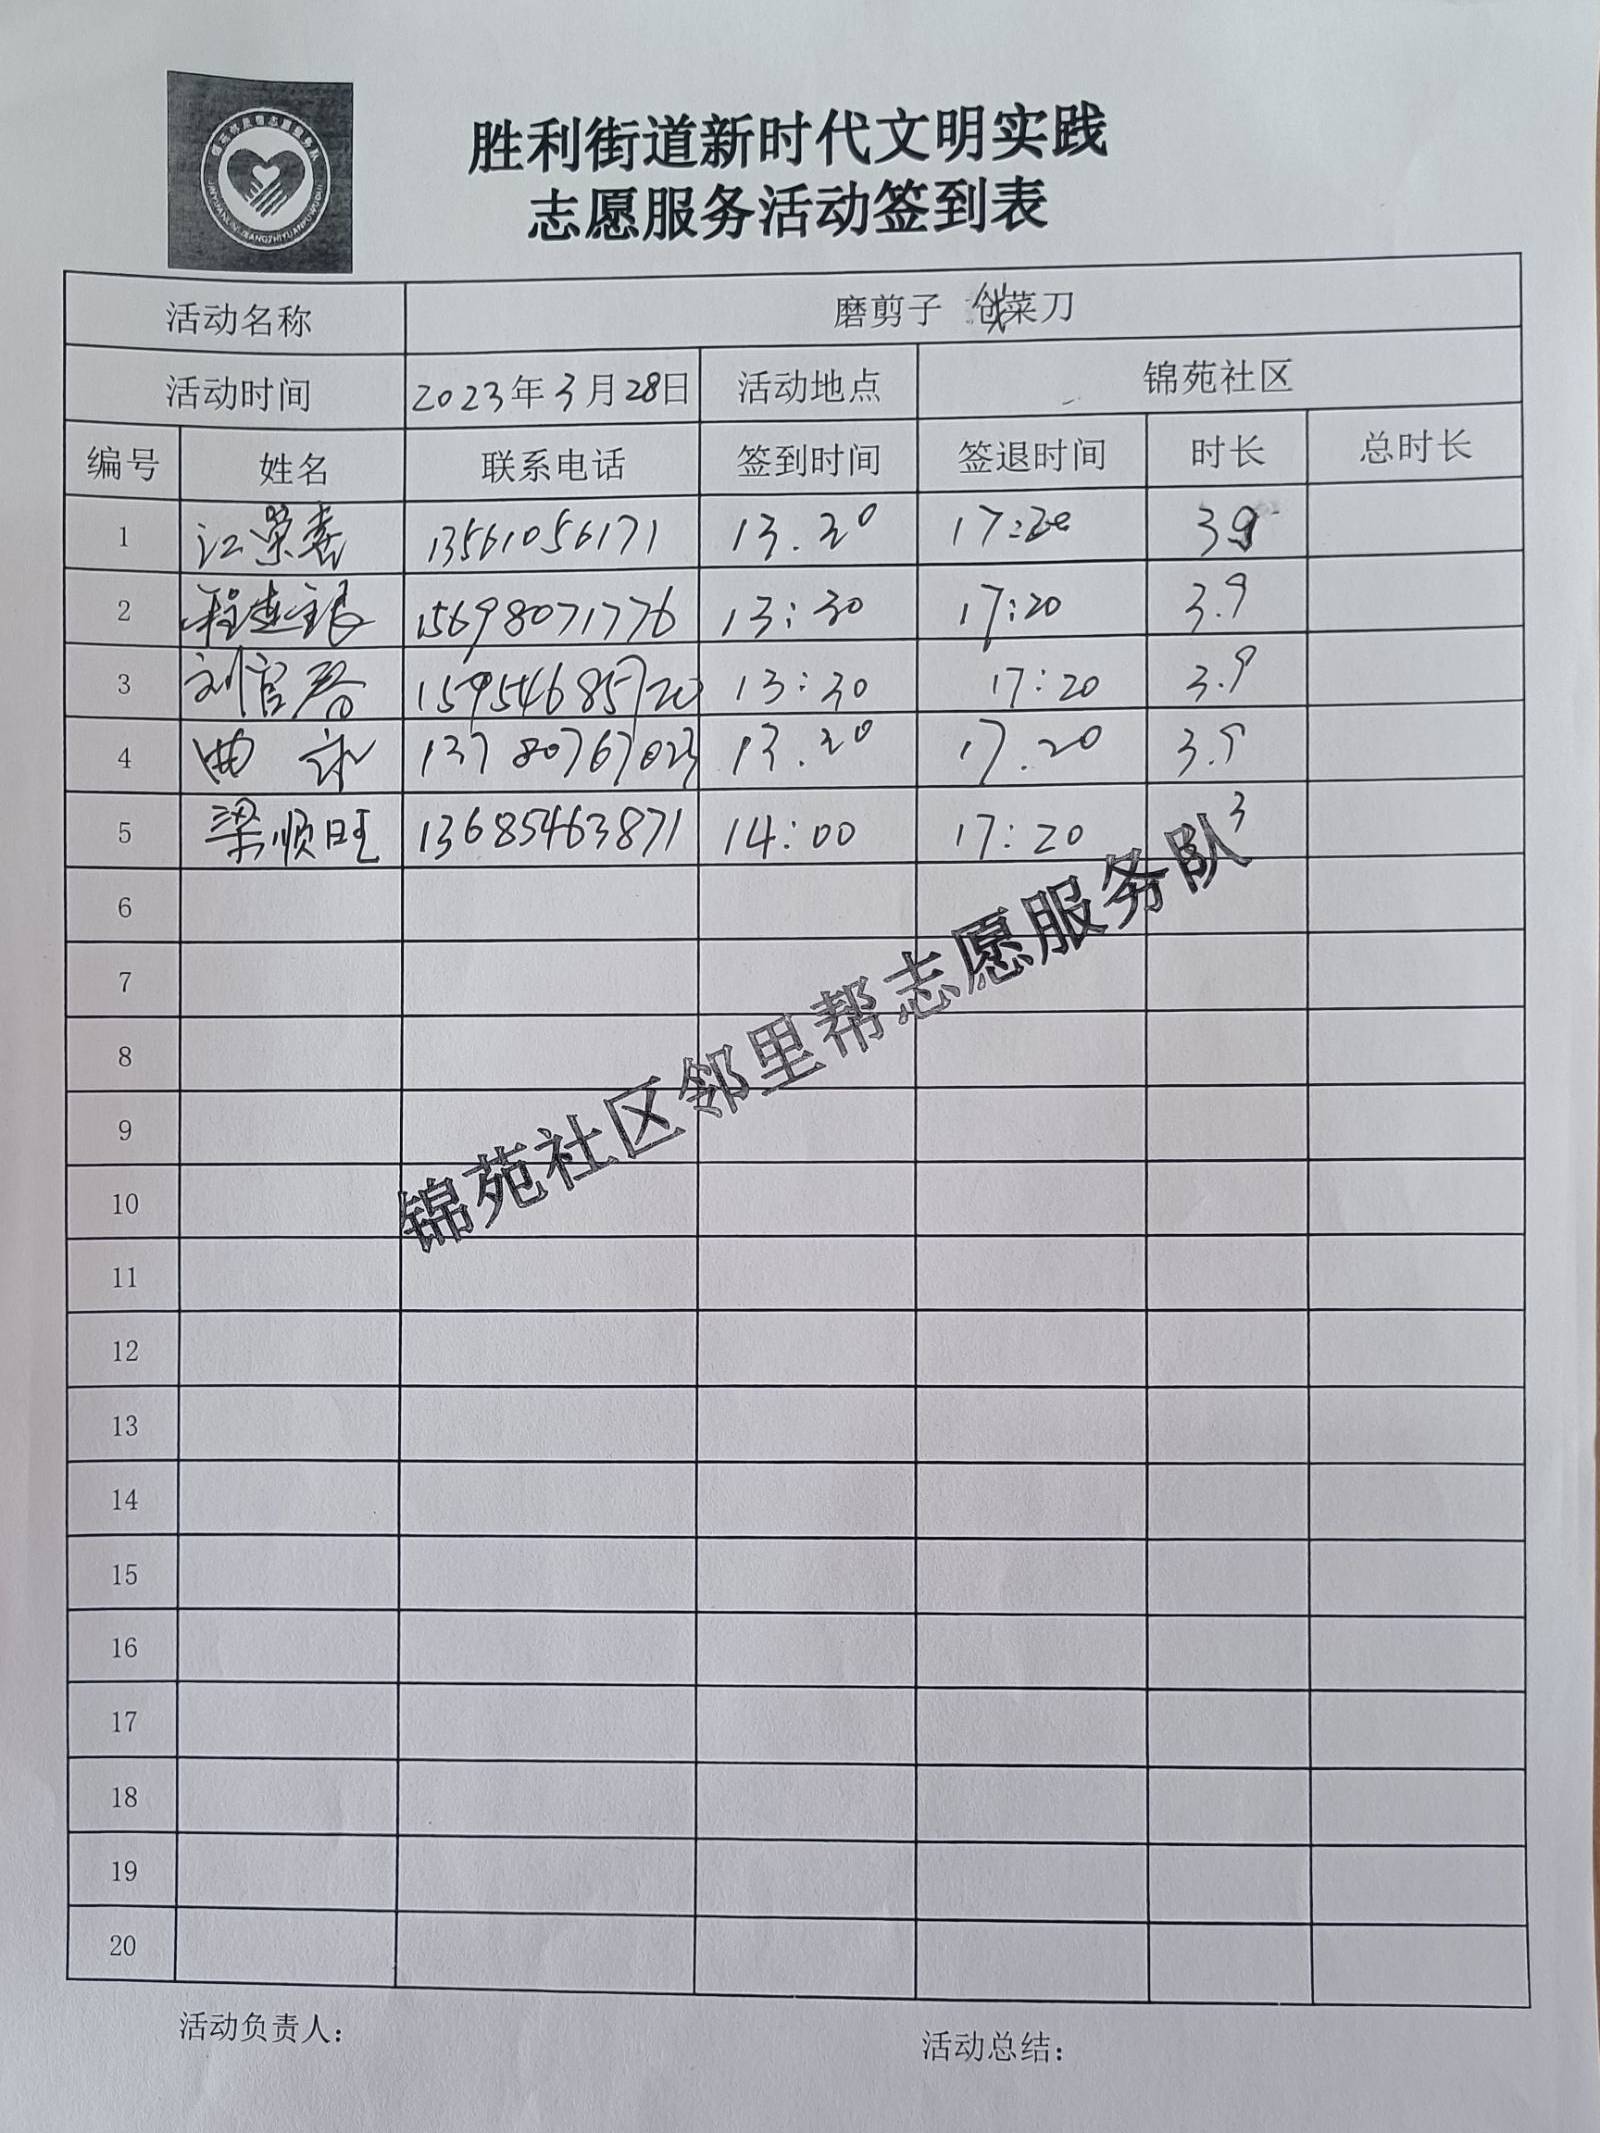 胜利街道新时代文明实践
志愿服务活动签到表
活动名称 磨剪子 菜刀
活动时间 2023年3月28日 活动地点 锦苑社区
编号 姓名 联系电话 签到时间 签退时间 时长 总时长
1 江荣喜 13561056171 13.30 17:20 3.9
2 程连银 15698071776 13:30 17:20 3.9
3 刘官 15954685720 13:30 17:20 3.9
4 曲 13780767023 13.30 17.20 3.9
5 梁顺旺 13685463871 14:00 17:20 3
6
7
8
9
10
11
12
13
14
15
16
17
18
19
20
锦苑社区邻里帮志愿服务队
活动负责人：
活动总结：